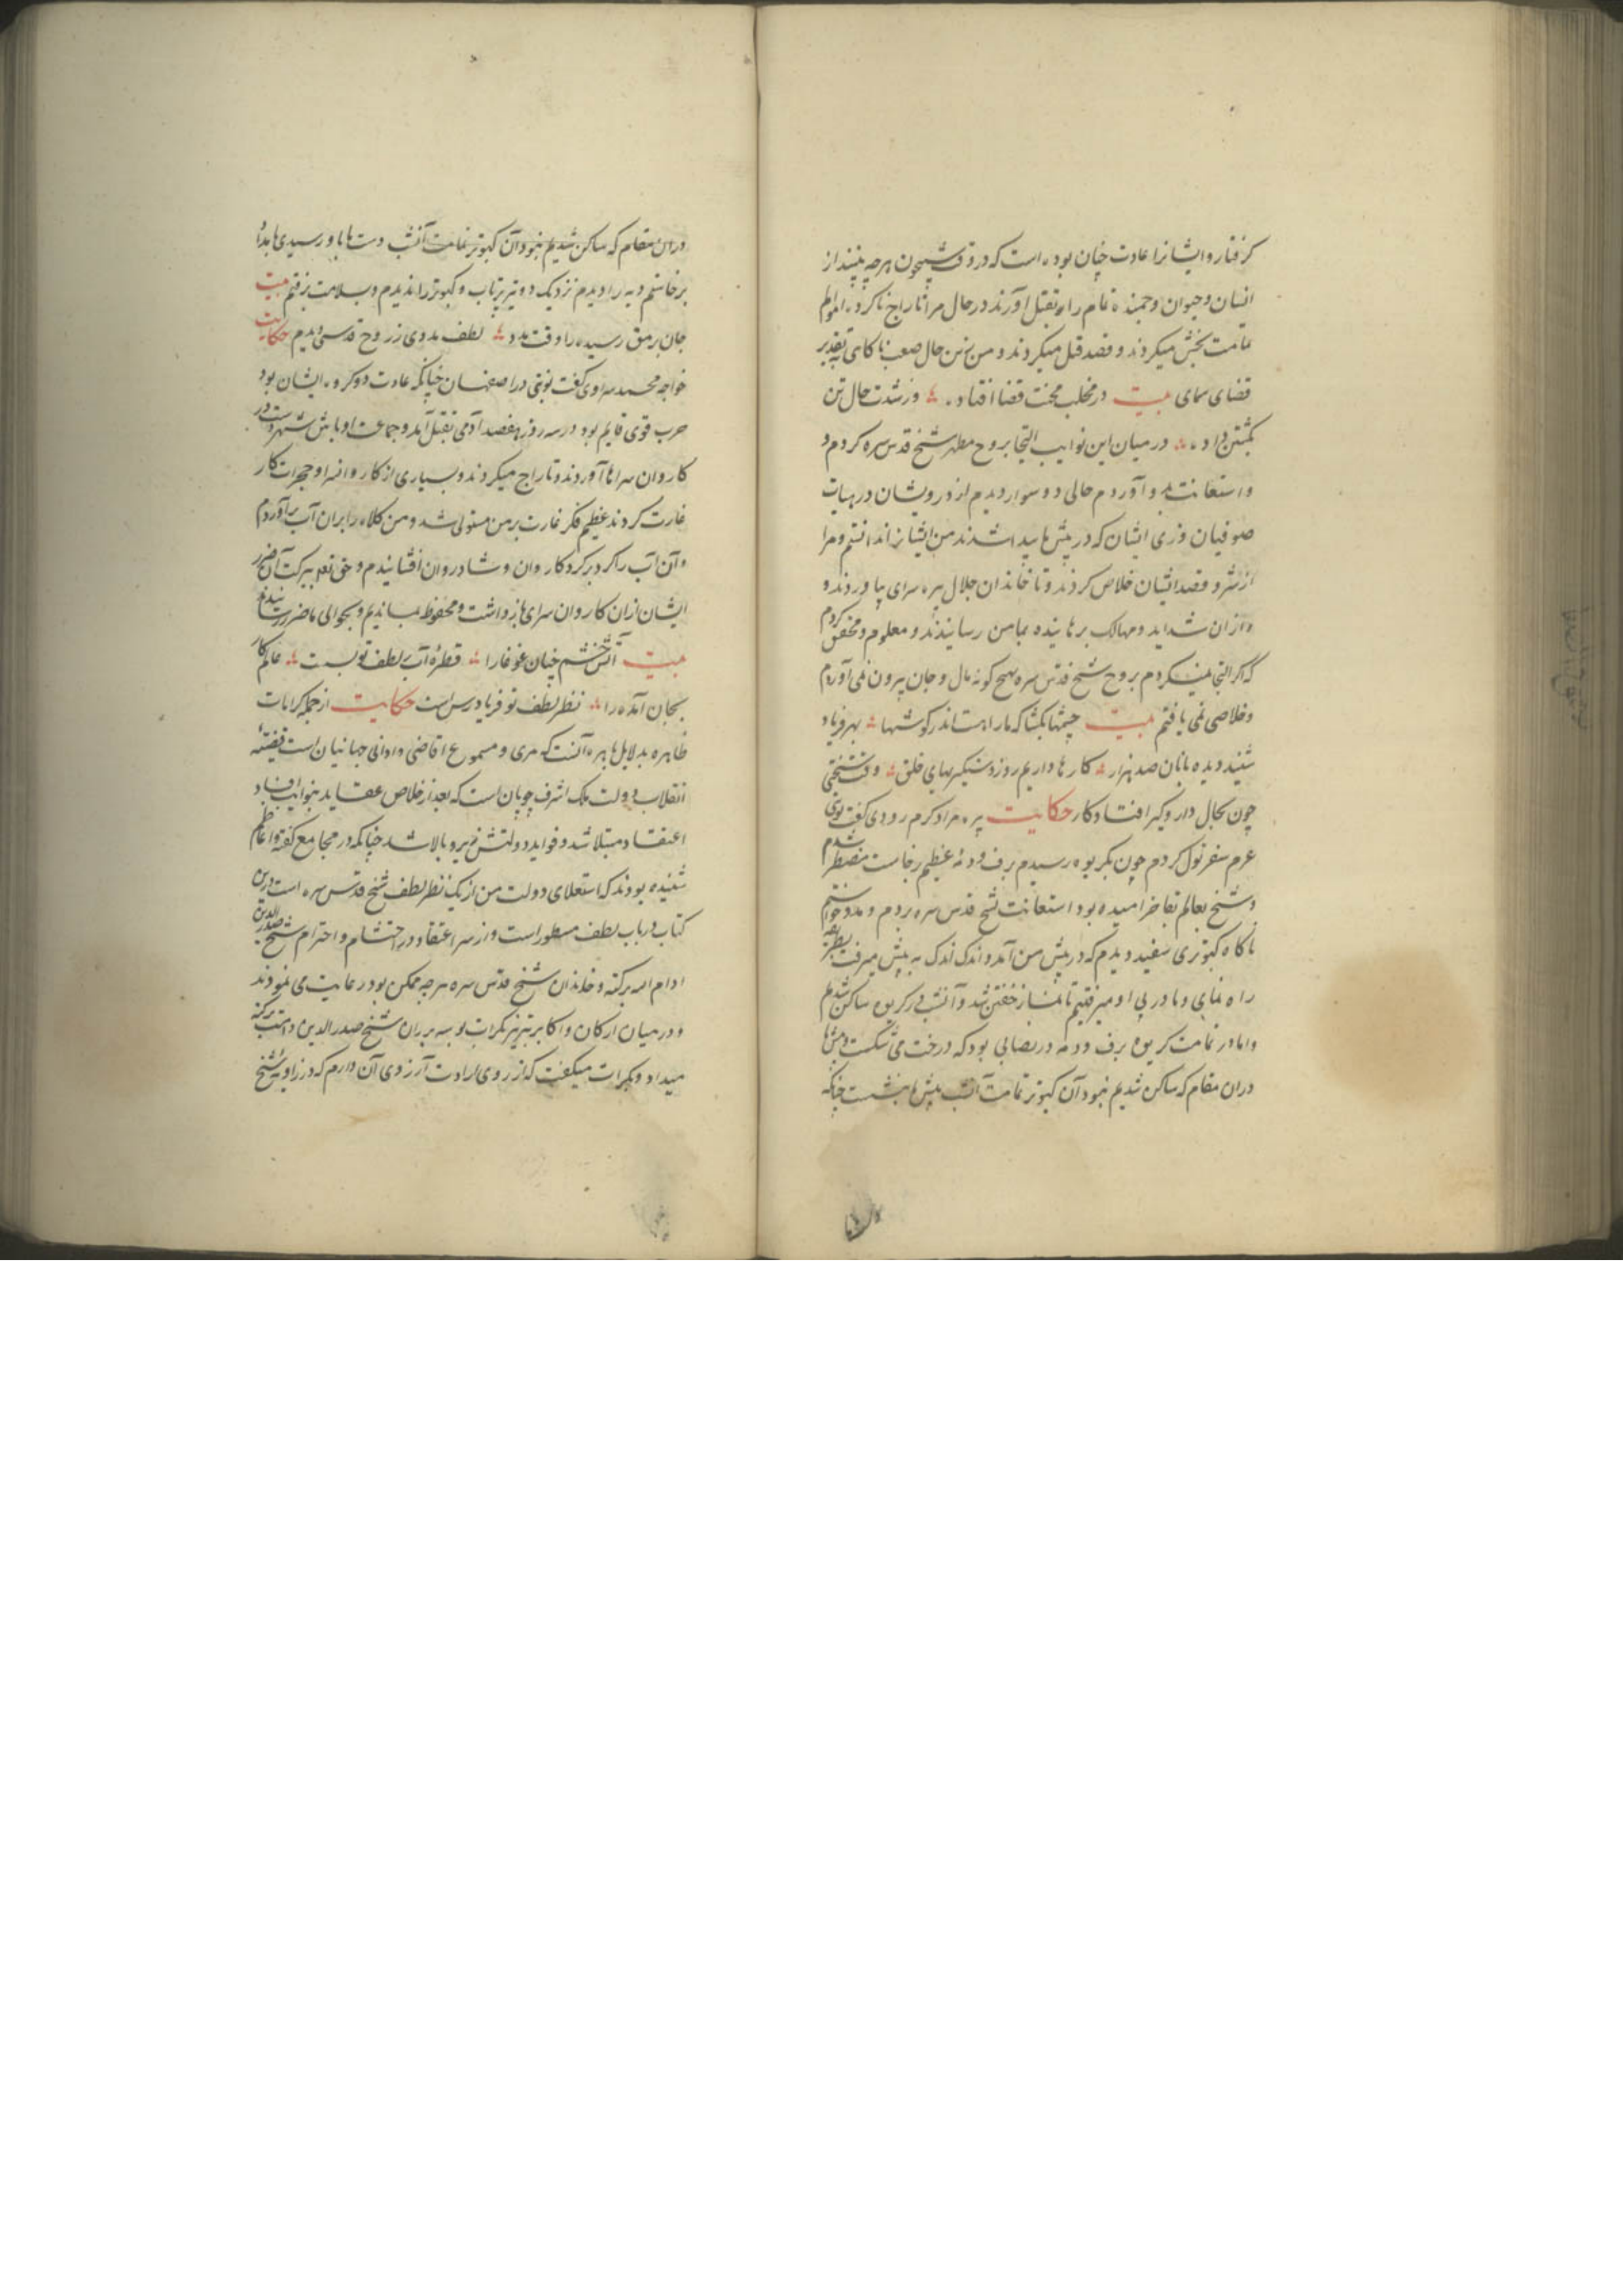 گرفتار و ایشانرا عادت چنان بوده است که در وقت شبیخون هرچه بینند از
انسان و حیوان و جمنده تمام را بقتل آورند در حال مرا تاراج ناکرده اموالم
تمامت بخش میکردند و قصد قتل میکردند و من درین حال صعب ناکامی تقدیر
قضای سمای بیت در مخلب محنت قضا افتاده وز شدت حال تن
بکشتن داده در میان این نوایب التجا بروح مطهر شیخ قدس سره کردم و
و استعانت بدو آوردم حالی دو سوار دیدم از درویشان در هیات
صوفیان و زی ایشان که در پیش ما پیدا شدند من ایشانرا ندانستم و مرا
از شر و قصد ایشان خلاص کردند و تا خاندان جلال پیره سرای بیاوردند و
و از ان شداید و مهالک برهانیده بمامن رسانیدند و معلوم و محقق کردم
که اگر التجا نمیکردم بروح شیخ قدس سره بهیچ گونه مال و جان بیرون نمی آوردم
و خلاصی نمی یافتم بیت چشمها بگشا که ما را هست اندر گوشها بهر فریاد
شنیدیده بانان صد هزار کارها داریم روز دستگیریهای خلق وقت سختی
چون بحال دار و گیر افتاد کار حکایت پیره مراد کرم رودی گفت نوبتی
عزم سفر نول کردم چون بکریوه رسیدم برف و دمه عظیم برخاست مضطر شدم
و شیخ بعالم بقا خرامیده بود استعانت بشیخ قدس سره بردم و مدد خواستم
ناگاه کبوتری سفید دیدم که در پیش من آمد و اندک اندک به پیش میرفت بطریقه
راه نمای و ما در پی او میرفتیم تا نماز خفتن شد و آنشب در کریوه ساکن شدیم
و اما در تمامت کریوه برف و دمه در بصابی بود که درخت می شکست و پیش ما
دران مقام که ساکن شدیم نبود آن کبوتر تمامت آنشب پیش ما بنشست چنانکه
دران مقام که ساکن شدیم نبود آن کبوتر تمامت آنشب دست ما باو رسیدی بامداد
برخاستم دیه را دیدم نزدیک دو تیر پرتاب و کبوتر را ندیدم و بسلامت برفتم بیت
جان برمق رسیده را وقت مدد لطف مددی ز روح قدسی دیدم حکایت
خواجه محمد سراوی گفت نوبتی در اصفهان چنانکه عادت دو گروه ایشان بود
حرب قوی قایم بود در سه روز هفصد آدمی بقتل آمد و جماعت اوباش شهر دست در
کاروان سراها آوردند و تاراج میکردند و بسیاری از کاروانسرا و حجرات کار
غارت کردند عظیم فکر غارت بر من مستولی شد و من کلاه را بران آب برآوردم
و آن آب را گرد برگرد کاروان و شادروان افشانیدم و حق تعالی ببرکت آن ضرر
ایشان ازان کاروان سرای باز داشت و محفوظ بماندیم و بحوالی ما ضرر نرسانیدند
بیت آتش خشم چنان غوغا را قطره آب ز لطف تو بست عالم کار
بجان آمده را نظر لطف تو فریادرس است حکایت از جمله کرامات
ظاهره بدلایل باهره آنست که مری و مسموع اقاضی و ادانی جهانیان است قضیه
انقلاب دولت ملک اشرف چوپان است که بعد از خلاص عقاید بنوایب فساد
اعتقاد مبتلا شد و فواید دولتش زیر و بالا شد چنانکه در مجامع گفته و اعاظم
شنیده بودند که استعلای دولت من از یک نظر لطف شیخ قدس سره است و درین
کتاب در باب لطف مسطور است و از سر اعتقاد در احتشام و احترام شیخ صدر الدین
ادام الله برکته و خاندان شیخ قدس سره هرچه ممکن بود رعایت می نمودند
و در میان ارکان و اکابر تبریز بکرات بوسه بر ران شیخ صدر الدین دامت برکته
میداد و بکرات میگفت که از روی ارادت آرزوی آن دارم که در زاویه شیخ